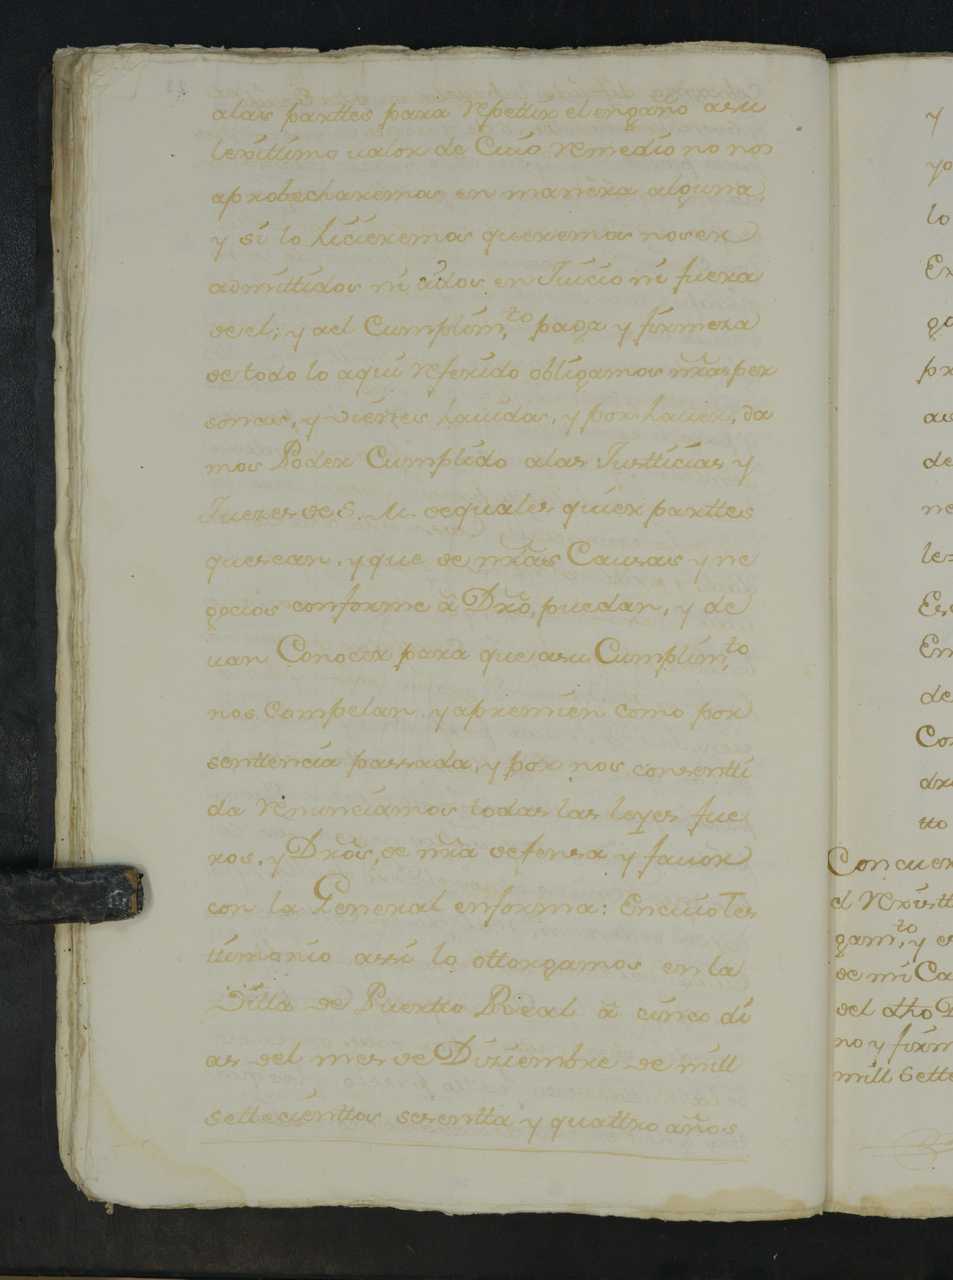 alas parttes para repettir el engaño asu
lexittimo ualor de Cuio remedio no nos
aprobecharemos en manera alguna,
y si lo hicieremos queremos no ser
admittidos ni oidos en Juicio ni fuera
de el; y ael Cumplim.to paga y firmeza
de todo lo aqui referido obligamos nr̃as per
sonas, y vienes hauidos, y por hauer, da
mos Poder Cumplido alas Justticias y
Juezes de S. M. de quales quier parttes
que sean, y que de nr̃as Causas y ne
gocios conforme â Dr̃o, puedan, y de
uan Conocer para que asu Cumplim.to
nos Compelan y apremien como por
senttencia passada, y por nos consentti
da renunciamos todas las leyes fue
ros, y Dr̃os, de nr̃a defensa y fauor
con la General enforma: En cuio Tes
timonio assi lo ottorgamos en la
Villa de Puertto Rl̃eal â cinco di
as del mes de Diziembre de mill
settecienttos sesentta y quattro años
y
yo
lo
En
go
pr
as
de
ne
les
Es
Em
de
Co
dr
tto
Concuer
el rexistt
gam.to, y es
de mi Ca
del dho D
no y firm
mill Sette